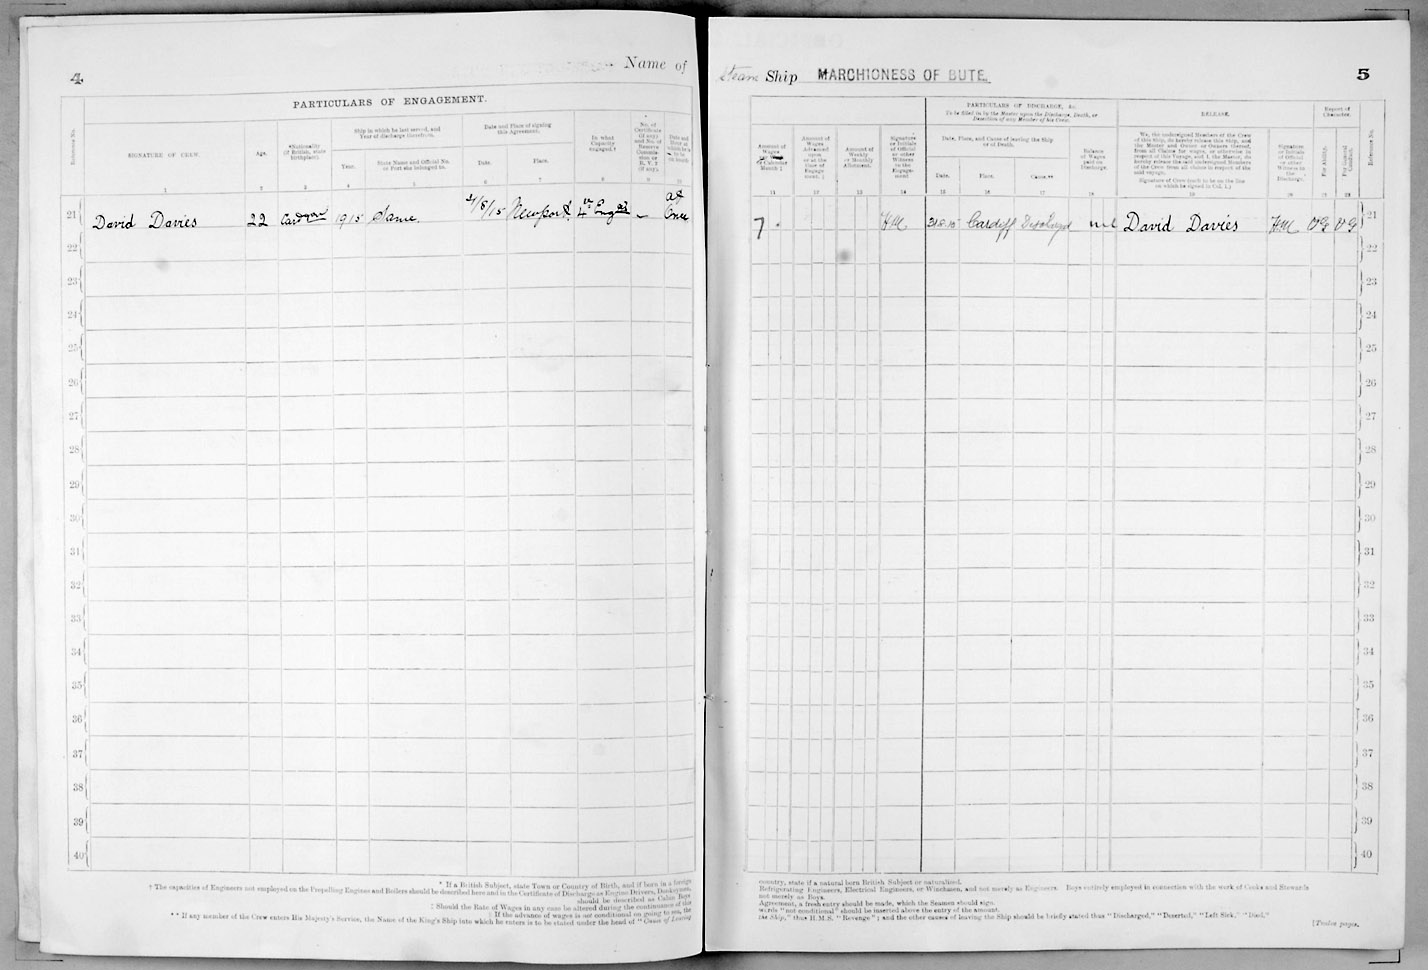 4
Name of
PARTICULARS OF ENGAGEMENT.
Reference No.
SIGNATURE OF CREW.
Age.
*Nationality
(If British, state
birthplace).
Ship in which he last served, and
Year of discharge therefrom.
Year.
State Name and Official No.
or Port she belonged to.
Date and Place of signing
this Agreement.
Date.
Place.
In what
Capacity
engaged.†
No. of
Certificate
(if any)
and No. of
Reserve
Commis-
sion or
R. V. 2
(if any).
Date and
Hour at
which he is
to be
on board.
1 2 3 4 5 6 7 8 9 10
21 David Davies 22 Cardigan 1915 Same 21/8/15 Newport 4th Engr – at
Once
22
23
24
25
26
27
28
29
30
31
32
33
34
35
36
37
38
39
40
* If a British Subject, state Town or Country of Birth, and if born in a foreign
† The capacities of Engineers not employed on the Propelling Engines and Boilers should be described here and in the Certificate of Discharge as Engine Drivers, Donkeymen,
should be described as Cabin Boys.
‡ Should the Rate of Wages in any case be altered during the continuance of the
§ If the advance of wages is not conditional on going to sea, the
** If any member of the Crew enters His Majesty's Service, the Name of the King's Ship into which he enters is to be stated under the head of "Cause of Leaving
Steam Ship MARCHIONESS OF BUTE. 5
Amount of
Wages
per Week
or Calendar
Month ‡
Amount of
Wages
Advanced
upon
or at the
time of
Engage
ment.
Amount of
Weekly
or Monthly
Allotment.
Signature
or Initials
of Official
or other
Witness
to the
Engage-
ment
PARTICULARS OF DISCHARGE, &c.
To be filled in by the Master upon the Discharge, Death, or
Desertion of any Member of his Crew.
Date, Place, and Cause of leaving the Ship
or of Death.
Date.
Place.
Cause.**
Balance
of Wages
paid on
Discharge.
RELEASE.
We, the undersigned Members of the Crew
of this Ship, do hereby release this Ship, and
the Master and Owner or Owners thereof,
from all Claims for wages, or otherwise in
respect of this Voyage, and I, the Master, do
hereby release the said undersigned Members
of the Crew from all claims in respect of the
said voyage.
Signature of Crew (each to be on the line
on which he signed in Col. 1.)
Signature
or Initials
of Official
or other
Witness to
the
Discharge.
Report of
Character.
For Ability.
For General
Conduct.
Reference No.
11 12 13 14 15 16 17 18 19 20 21 22
7 HM 31.8.15 Cardiff Discharged nil David Davies HM VG VG 21
22
23
24
25
26
27
28
29
30
31
32
33
34
35
36
37
38
39
40
country, state if a natural born British Subject or naturalized.
Refrigerating Engineers, Electrical Engineers, or Winchmen, and not merely as Engineers. Boys entirely employed in connection with the work of Cooks and Stewards
not merely as Boys.
Agreement, a fresh entry should be made, which the Seamen should sign.
words "not conditional" should be inserted above the entry of the amount.
the Ship," thus H.M.S. "Revenge"; and the other causes of leaving the Ship should be briefly stated thus "Discharged," "Deserted," "Left Sick," "Died."
[Twelve pages.